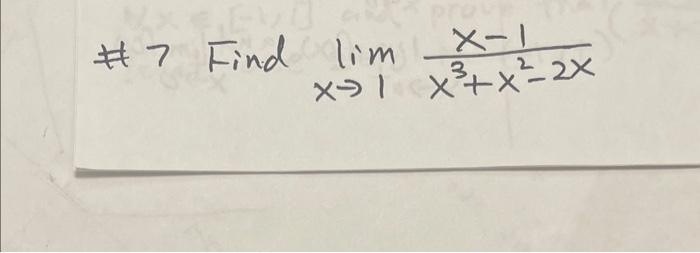 #7 Find lim x→1 (x-1)/(x³+x²-2x)